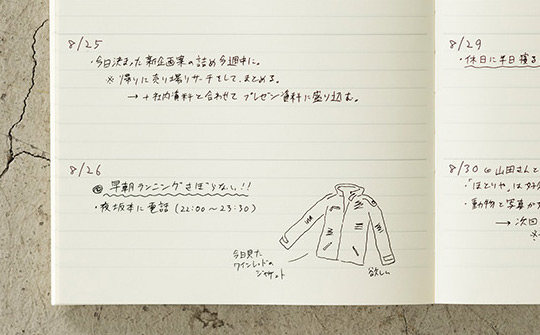 8/25
・今日決まった新企画案の詰め今週中に。
※帰りに売り場リサーチをして、まとめる。
→+社内資料と合わせてプレゼン資料に盛り込む。
8/26
早朝ランニングさぼらない!!
・夜坂本に電話(22:00〜23:30)
今日見た
ワインレッドの
ジャケット
欲しい
8/29
・休日に半日
8/30
山田さんと
「ほとりや」は
・動物と写真が
→次回
※